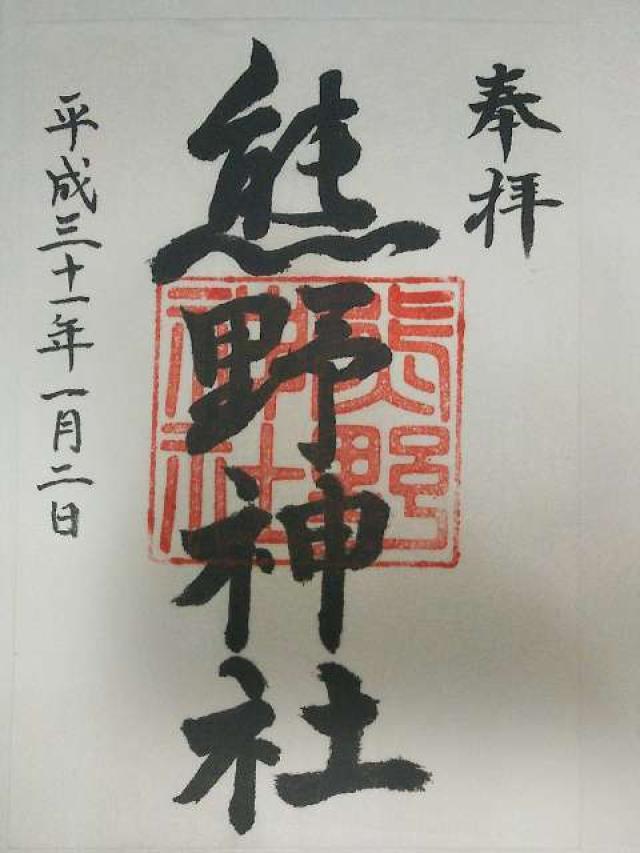 奉拝
熊野神社
熊野
神社
平成三十一年一月二日